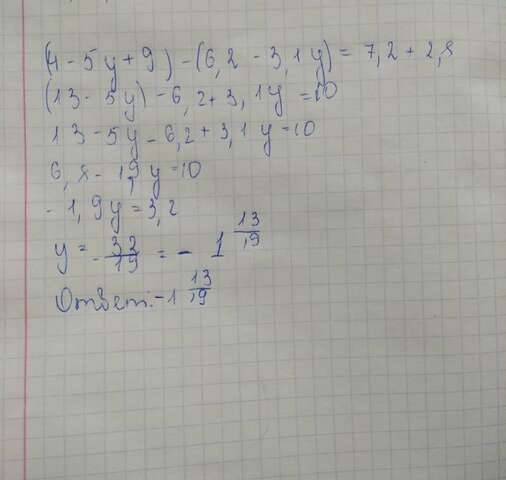 (4 - 5y + 9) - (6,2 - 3,1y) = 7,2 + 2,8
(13 - 5y) - 6,2 + 3,1y = 10
13 - 5y - 6,2 + 3,1y = 10
6,8 - 1,9y = 10
- 1,9y = 3,2
y = - 32/19 = - 1 13/19
Ответ: -1 13/19